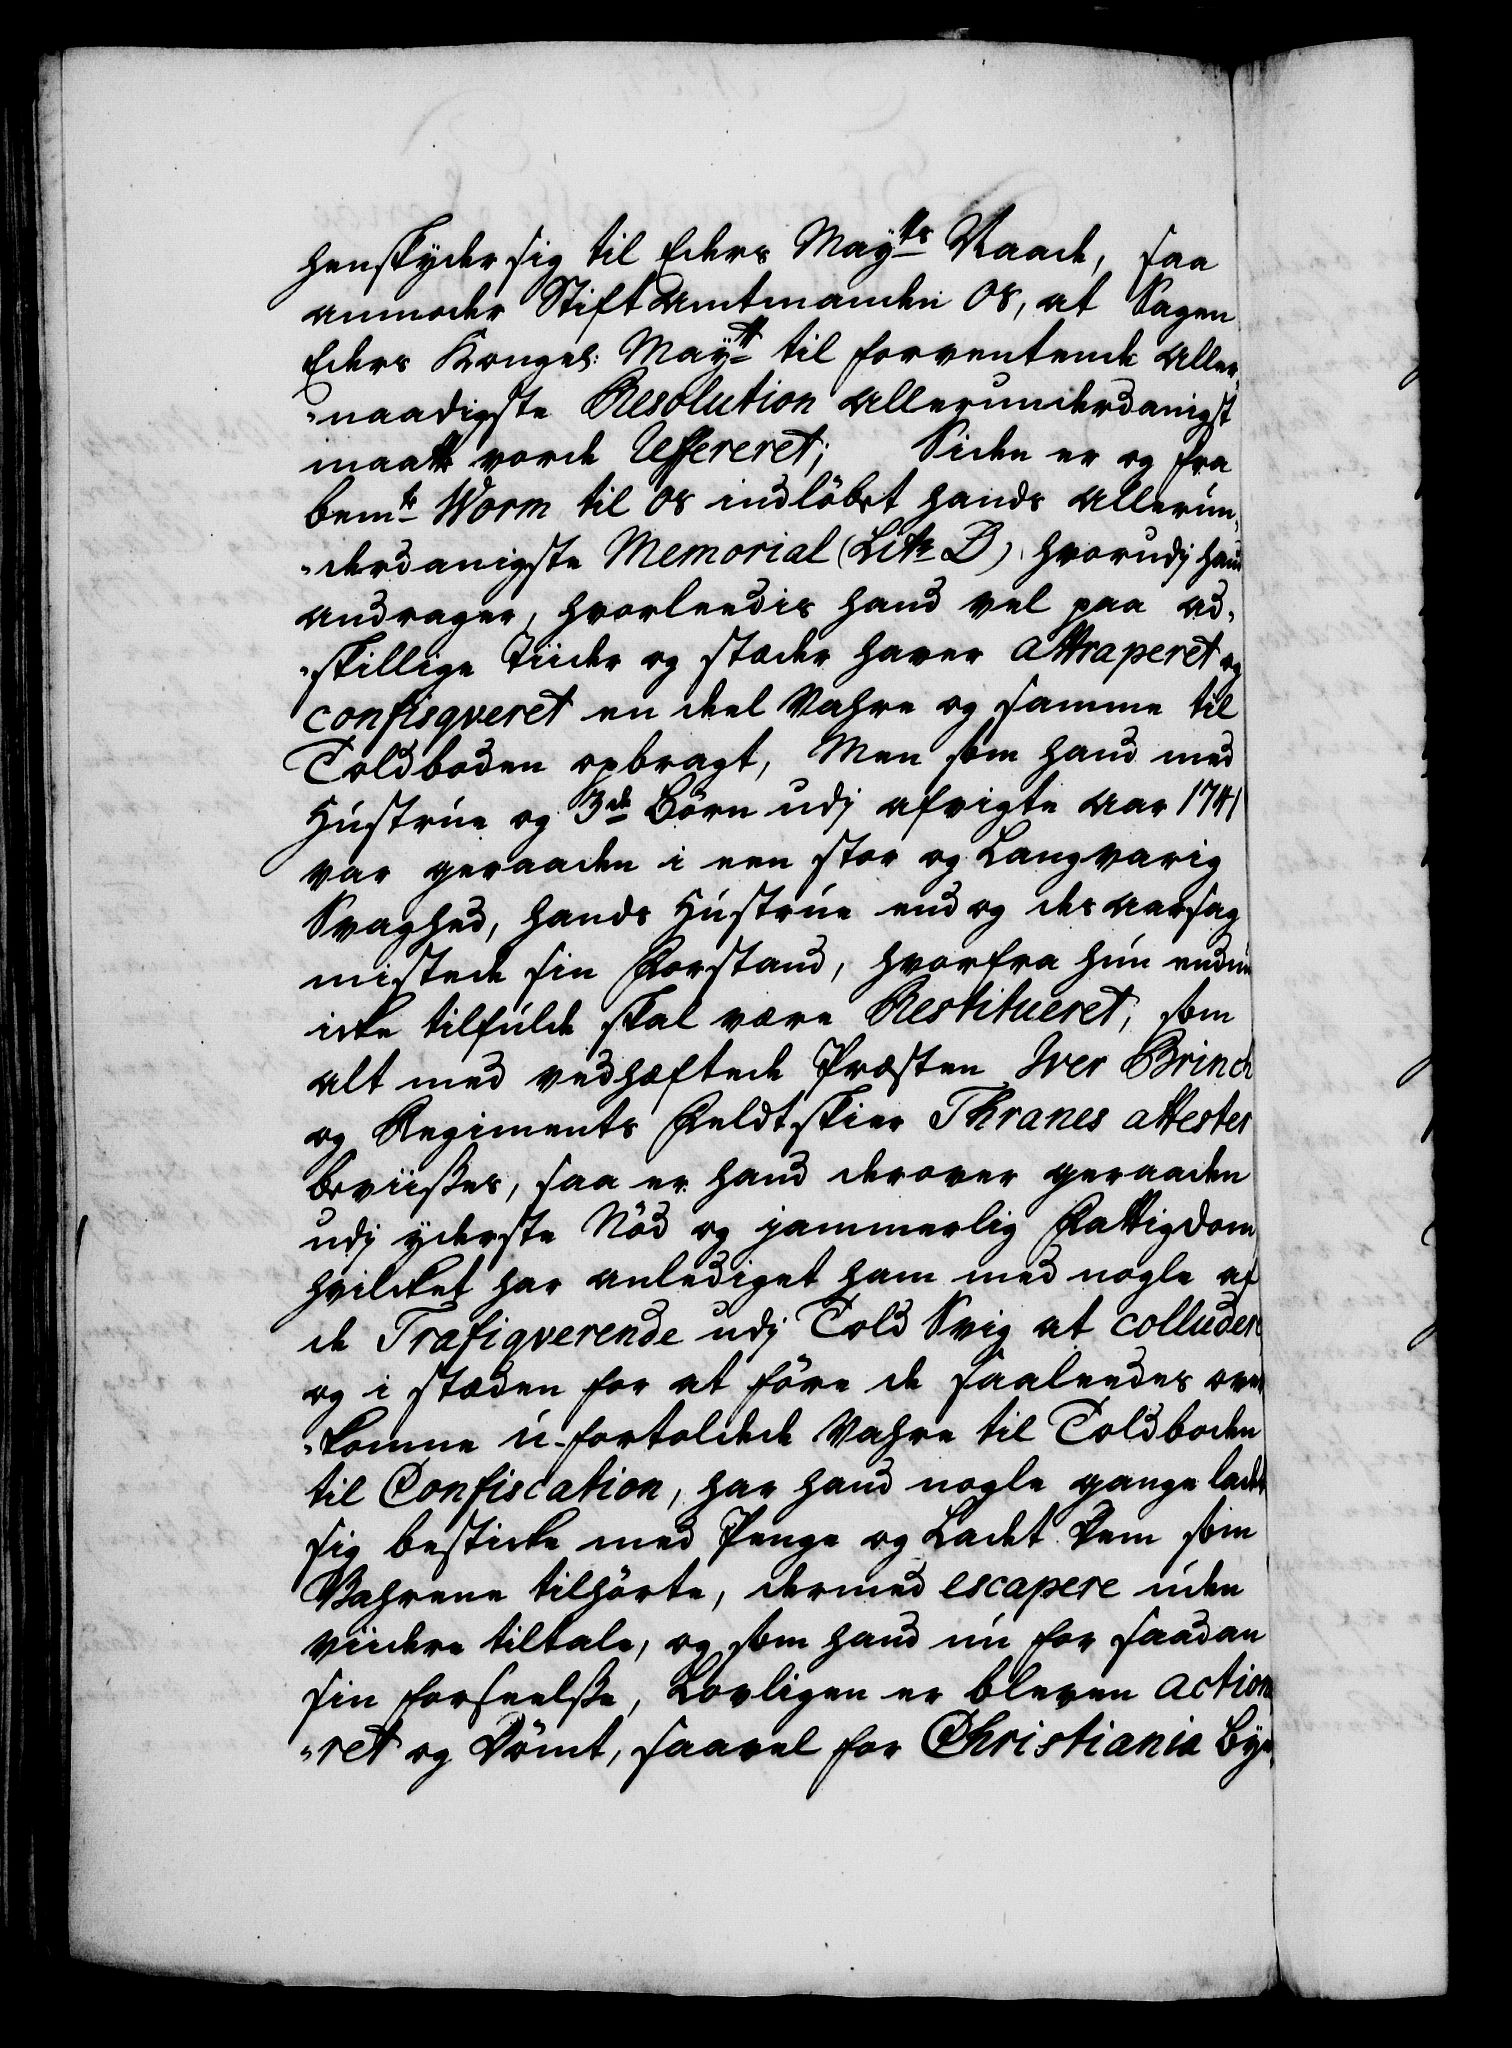 henskyder sig til Eders May.ts Naade, saa
anmoder Stiftamtmanden os, at Sagen
Eders Kongel: May.tt til forventende Aller,,
,,naadigste Resolution allerunderdanigst
maatte vorde refereret; Siden er og fra
bem.te Worm til os indløbet hands allerun,,
,,derdanigste Memorial (Litr. D) hvorudj hand
andrager, hvorleedis hand vel paa ad,,
,,skillige Tiider og stæder haver attraperet og
confisqveret en deel Vahre og samme til
Toldboden opbragt, Men som hand med
Hústrúe og 3de Børn udj afvigte Aar 1741
var geraaden i een stor og Langvarig
Svaghed, hands Hústrúe end og des aarsag
mistede sin Forstand, hvorfra hún endnu
icke tilfúlde skal være Restitueret, som
alt med vedhæftede Præsten Iver Brinch
og Regiments Feldtskier Thranes attester
beviises, saa er hand derover geraaden
udj yderste Nød og jammerlig Fattigdom
hvilcket har anlediget ham med nogle af
de Trafiqverende udj Told Svig at colludere
og i stæden for at føre de saaleedes over
,,komne ú-fortoldede Vahre til Toldboden
til Confiscation, har hand nogle gange ladet
sig besticke med Penge og Ladet dem som
Vahrene tilhørte, dermed escapere úden
viidere tiltale, og som hand nú for saadan
sin forseelse, Lovligen er bleven action
,,ret og Dømt, saavel for Christiania Bye,,